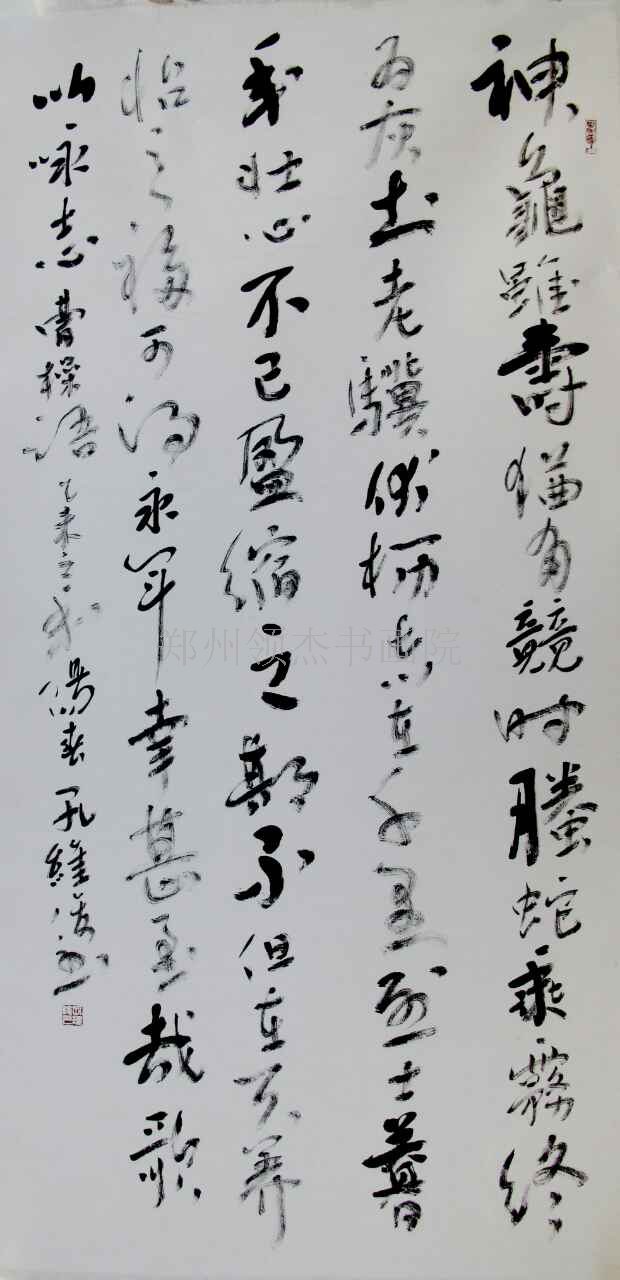 神龜雖壽猶有競時螣蛇乘霧終
为灰土老驥伏枥志在千里烈士暮
年壯心不已盈縮之期不但在天养
怡之福可得永年幸甚至哉歌
以咏志曹操語乙未之秋孔維
郑州领杰书画院